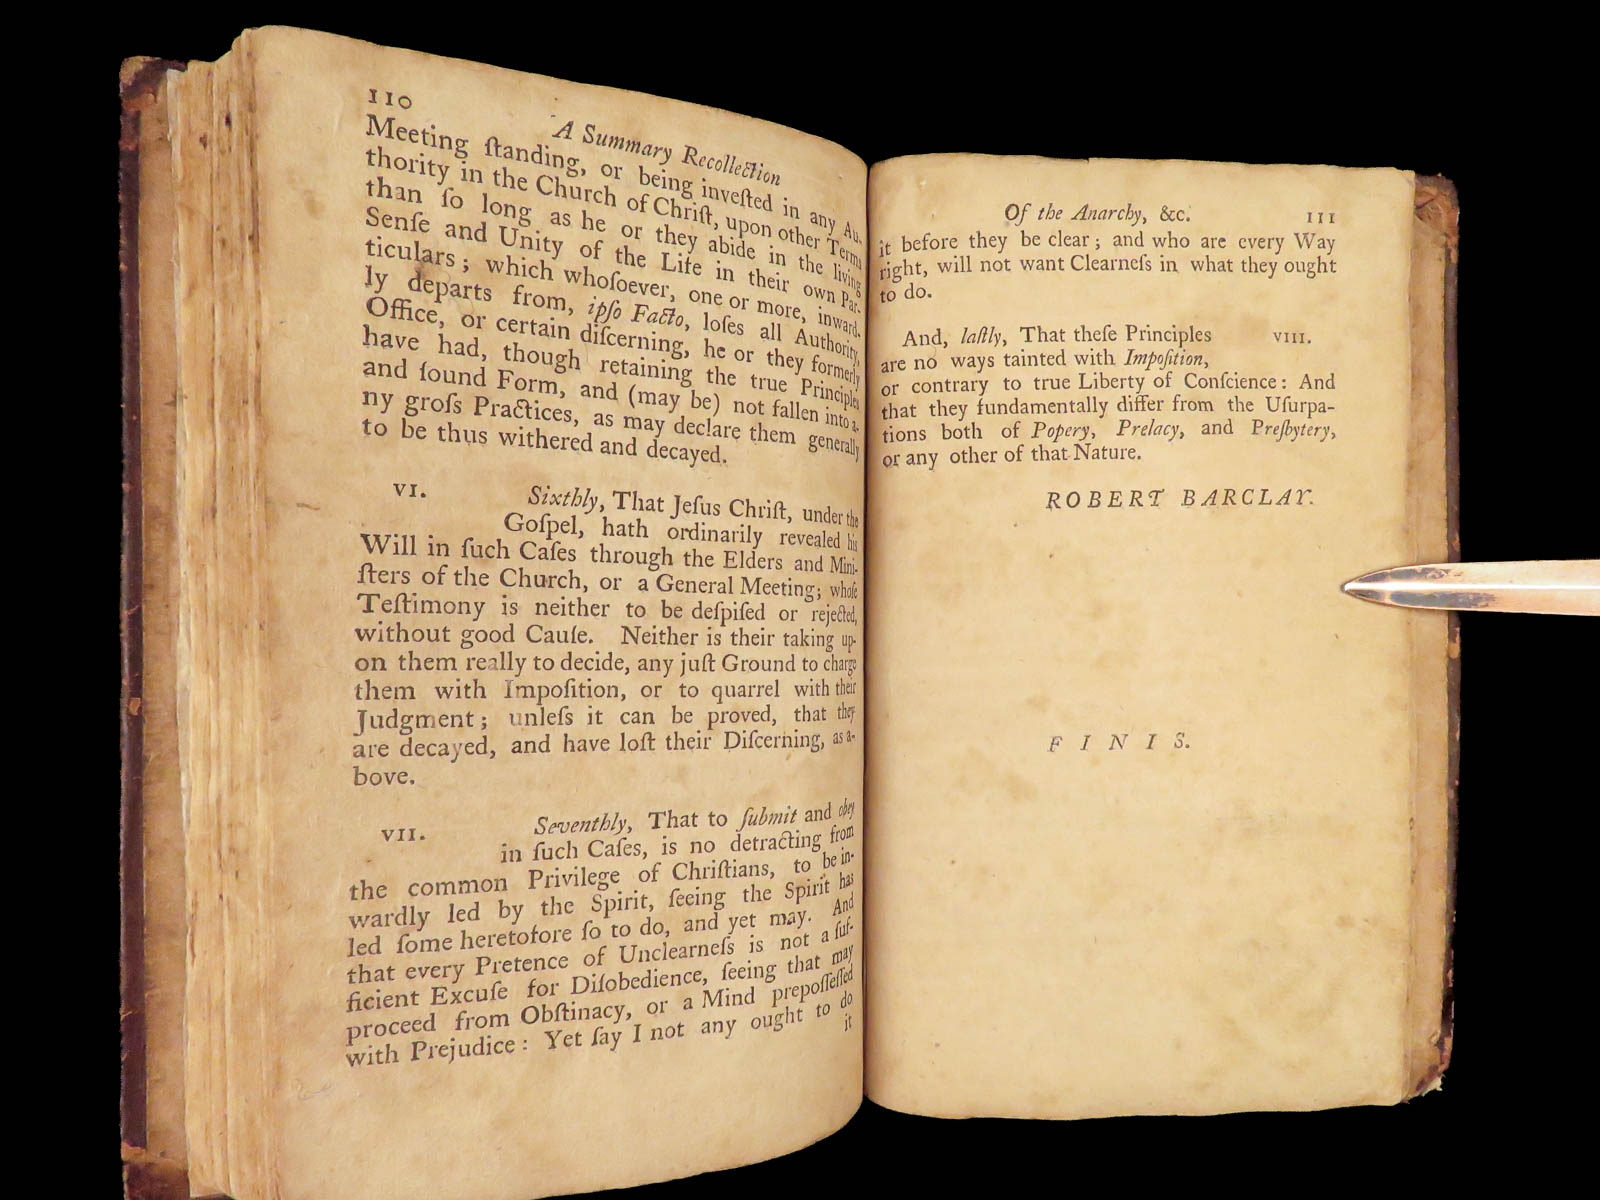 110
A Summary Recollection
Meeting ſtanding, or being inveſted in any Au-
thority in the Church of Chriſt, upon other Terms
than ſo long as he or they abide in the living
Senſe and Unity of the Life in their own Par-
ticulars; which whoſoever, one or more, inward-
ly departs from, ipſo Facto, loſes all Authority,
Office, or certain diſcerning, he or they formerly
have had, though retaining the true Principles
and ſound Form, and (may be) not fallen into a-
ny groſs Practices, as may declare them generally
to be thus withered and decayed.
VI. Sixthly, That Jeſus Chriſt, under the
Goſpel, hath ordinarily revealed his
Will in ſuch Caſes through the Elders and Mini-
ſters of the Church, or a General Meeting; whoſe
Teſtimony is neither to be deſpiſed or rejected,
without good Cauſe. Neither is their taking up-
on them really to decide, any juſt Ground to charge
them with Impoſition, or to quarrel with their
Judgment; unleſs it can be proved, that they
are decayed, and have loſt their Diſcerning, as a-
bove.
VII. Seventhly, That to ſubmit and obey
in ſuch Caſes, is no detracting from
the common Privilege of Chriſtians, to be in-
wardly led by the Spirit, ſeeing the Spirit has
led ſome heretofore ſo to do, and yet may. And
that every Pretence of Unclearneſs is not a ſuf-
ficient Excuſe for Diſobedience, ſeeing that may
proceed from Obſtinacy, or a Mind prepoſſeſſed
with Prejudice: Yet ſay I not any ought to do
it
Of the Anarchy, &c. 111
it before they be clear; and who are every Way
right, will not want Clearneſs in what they ought
to do.
And, laſtly, That theſe Principles VIII.
are no ways tainted with Impoſition,
or contrary to true Liberty of Conſcience: And
that they fundamentally differ from the Uſurpa-
tions both of Popery, Prelacy, and Preſbytery,
or any other of that Nature.
ROBERT BARCLAY.
FINIS.